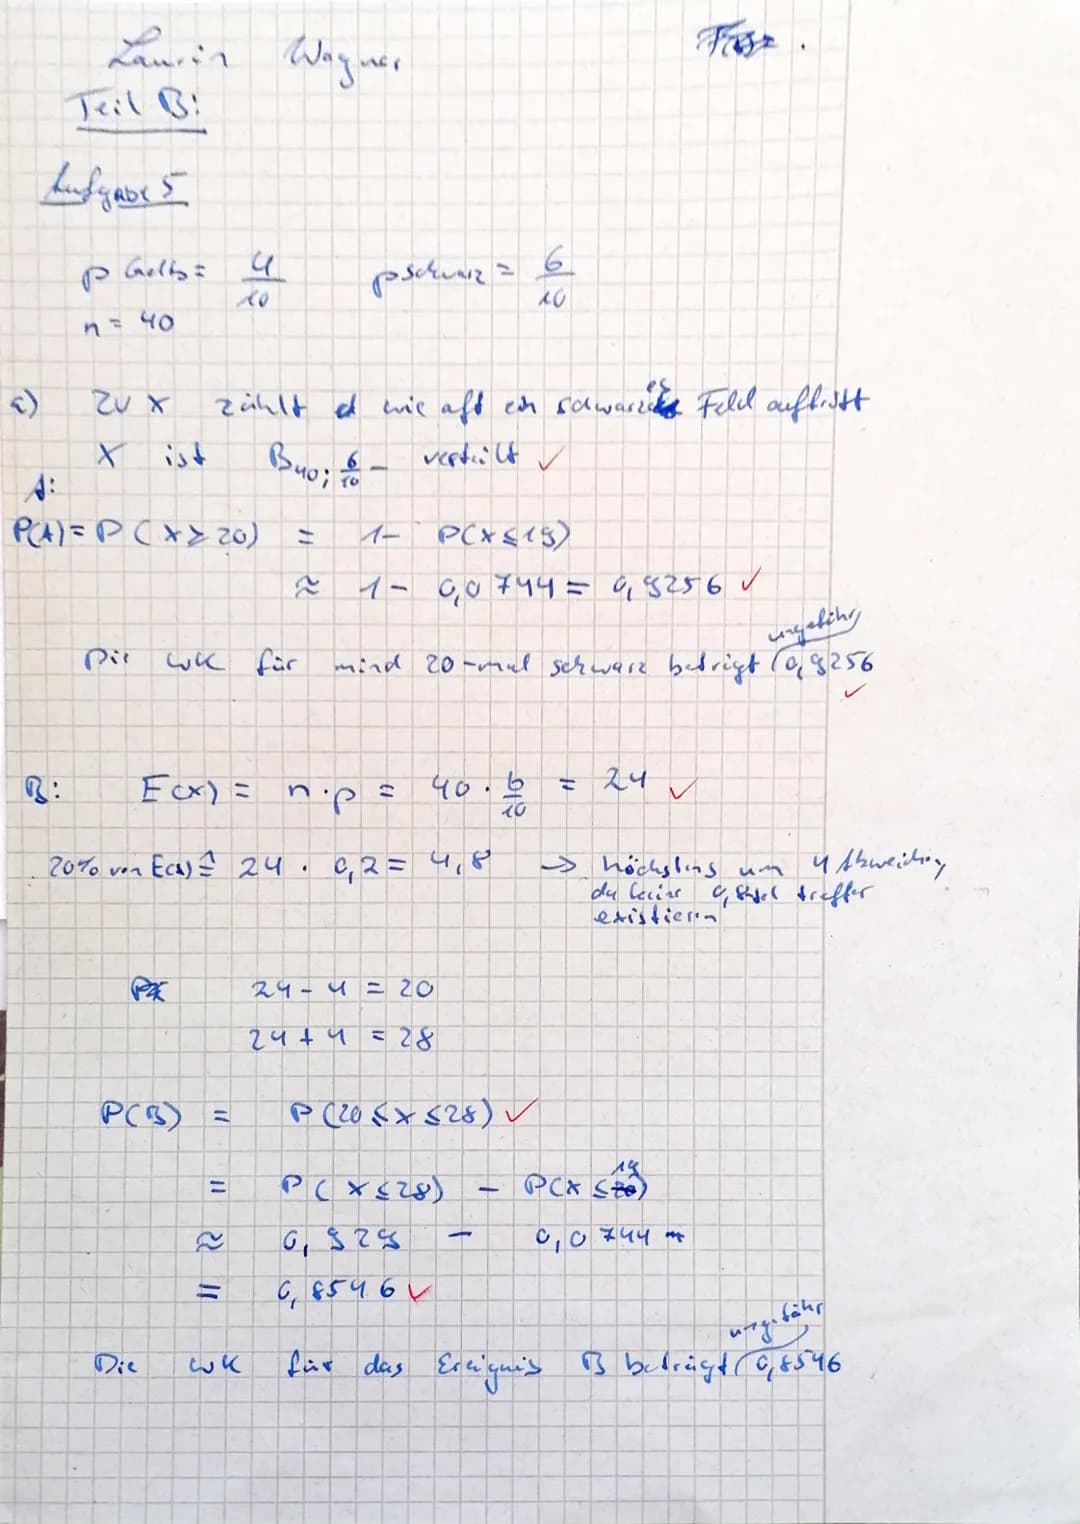 Laurin Wagner
Teil B:
Aufgabe 5
p Gelb = 4/10 p schwarz = 6/10
n = 40
a) ZV X zählt wie oft ein schwarzes Feld auftritt
X ist B40; 6/10 - verteilt ✓
A:
P(A) = P(X ≥ 20) = 1 - P(X ≤ 19)
≈ 1 - 0,0744 = 0,9256 ✓
ungefähr
Die WK für mind 20-mal schwarz beträgt 0,9256
✓
B: E(X) = n · p = 40 · 6/10 = 24 ✓
20% von E(X) ≙ 24 · 0,2 = 4,8 → höchstens um 4 Abweichung
da keine treffer
existieren
24 - 4 = 20
24 + 4 = 28
P(B) = P(20 ≤ X ≤ 28) ✓
= P(X ≤ 28) - P(X ≤ 19)
≈ 0,929 - 0,0744
= 0,8546 ✓
ungefähr
Die WK für das Ereignis B beträgt 0,8546